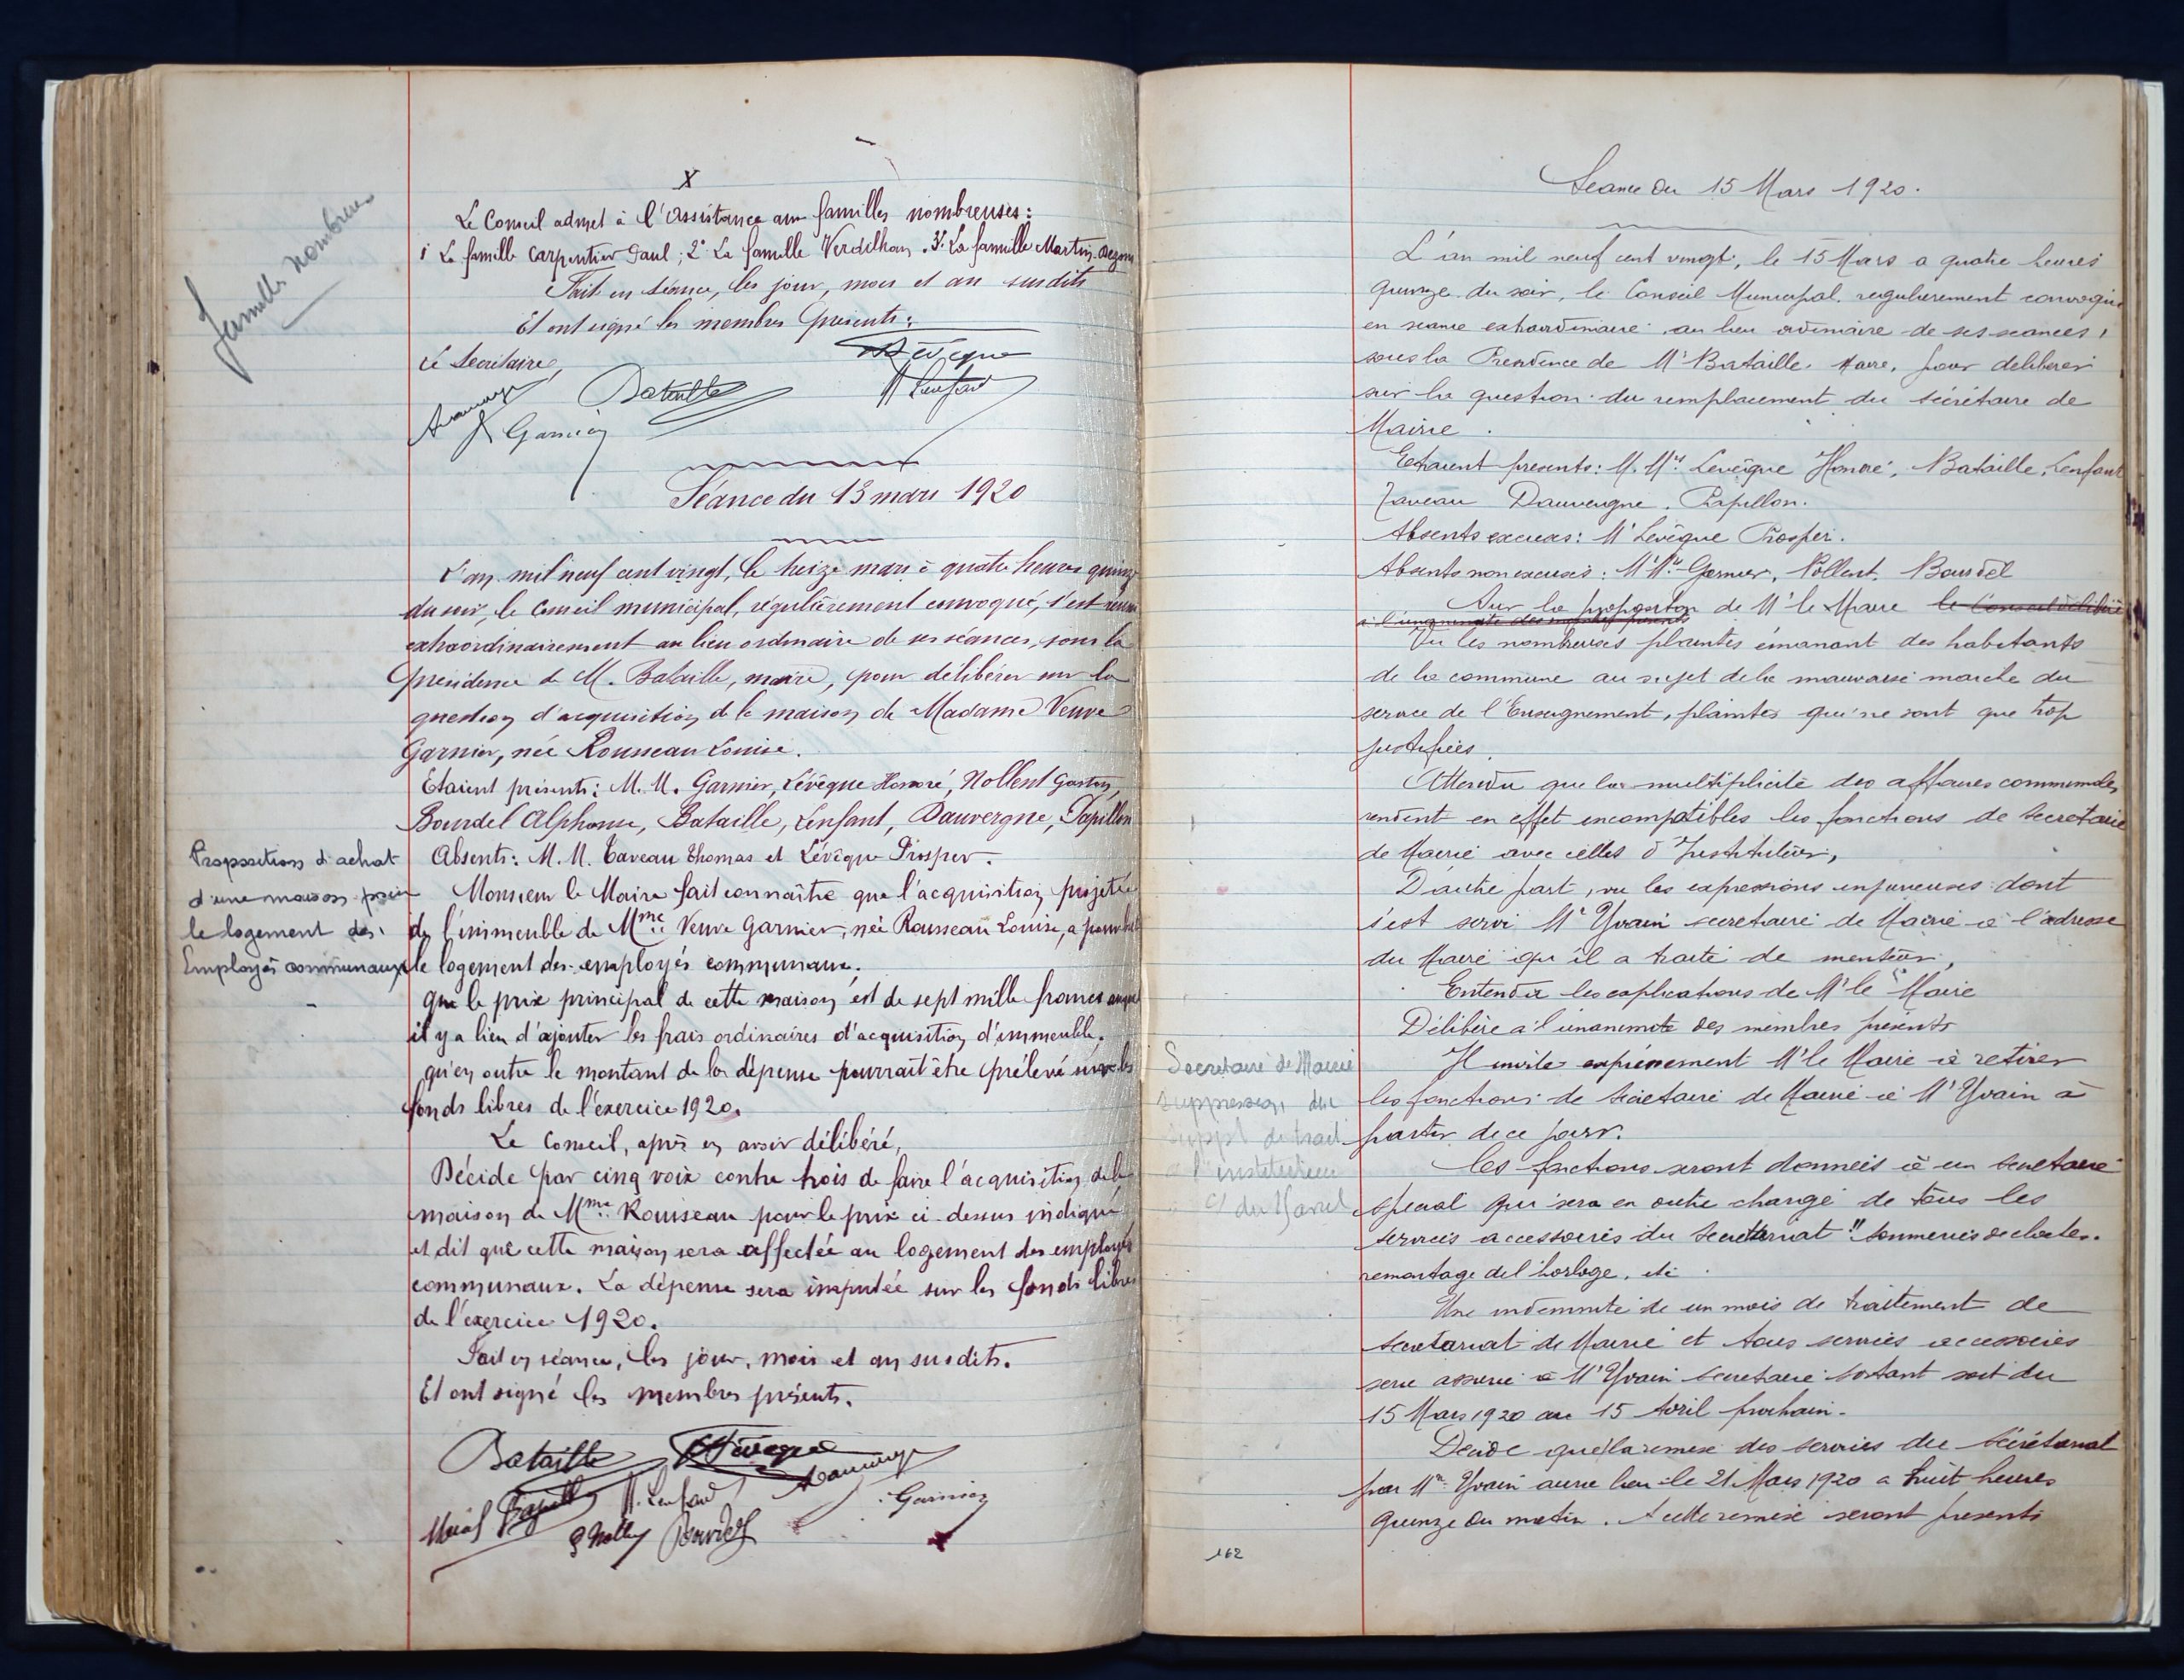 Familles nombreuses
X
Le Conseil admet à l'Assistance aux familles nombreuses:
1° La famille Carpentier Paul; 2° La famille Verdelhan. 3° La famille Martin
Fait en séance, les jour, mois et an susdits
Et ont signé les membres présents:
Le Secrétaire,
Lévêque
Bataille
H Lenfant
Garnier
Séance du 13 mars 1920
L'an mil neuf cent vingt, le treize mars à quatre heures quinze
du soir, le Conseil municipal, régulièrement convoqué, s'est réuni
extraordinairement au lieu ordinaire de ses séances, sous la
présidence de M. Bataille, maire, pour délibérer sur la
question d'acquisition de la maison de Madame Veuve
Garnier, née Rousseau Louise.
Etaient présents: M. M. Garnier, Lévêque Honoré, Nollent Gaston,
Bourdel Alphonse, Bataille, Lenfant, Dauvergne, Papillon
Absents: M. M. Taveau Thomas et Lévêque Prosper.
Proposition d'achat
d'une maison pour
le logement des
Employés communaux
Monsieur le Maire fait connaître que l'acquisition projetée
de l'immeuble de Mme Veuve Garnier, née Rousseau Louise, a pour but
le logement des employés communaux.
Que le prix principal de cette maison est de sept mille francs auquel
il y a lieu d'ajouter les frais ordinaires d'acquisition d'immeuble.
qu'en outre le montant de la dépense pourrait être prélevé sur les
fonds libres de l'exercice 1920.
Le Conseil, après en avoir délibéré,
Décide par cinq voix contre trois de faire l'acquisition de la
maison de Mme Rousseau pour le prix ci-dessus indiqué
et dit que cette maison sera affectée au logement des employés
communaux. La dépense sera imputée sur les fonds libres
de l'exercice 1920.
Fait en séance, les jour, mois et an susdits.
Et ont signé les membres présents.
Bataille Lévêque
Papillon H. Lenfant Garnier
G Nollent Bourdel
Seance du 15 Mars 1920.
L'an mil neuf cent vingt, le 15 Mars a quatre heures
quinze du soir, le Conseil Municipal regulierement convoqué
en seance extraordinaire au lieu ordinaire de ses seances,
sous la Presidence de Mr Bataille, Maire, pour deliberer
sur la question du remplacement du sécrétaire de
Mairie.
Etaient presents: M. Mrs Lévêque Honoré, Bataille, Lenfant
Taveau Dauvergne, Papillon.
Absents excuses: Mr Lévêque Prosper.
Absents non excusés: M. Mrs Garnier, Nollent, Bourdel
Sur la proposition de Mr le Maire le Conseil délibère
à l'unanimité des membres présents
Vu les nombreuses plaintes émanant des habitants
de la commune au sujet de la mauvaise marche du
service de l'Enseignement, plaintes qui ne sont que trop
justifiées.
Attendu que la multiplicité des affaires communales
rendent en effet incompatibles les fonctions de Secretaire
de Mairie avec celles d'Instituteur,
D'autre part, vu les expressions injurieuses dont
s'est servi Mr Yvain secretaire de Mairie à l'adresse
du Maire qu'il a traité de menteur,
Entendu les explications de Mr le Maire
Délibère à l'unanimite des membres présents
Secretaire de Mairie
suppression du
suppt de trait
à l'instituteur
Il invite expressement Mr le Maire à retirer
les fonctions de Sécretaire de Mairie à Mr Yvain à
partir de ce jour.
Ces fonctions seront données à un Secretaire
special qui sera en outre chargé de tous les
services accessoires du Secretariat "Sonneries de cloches.
remontage de l'horloge, etc
Une indemnité de un mois de traitement de
Secretariat de Mairie et tous services accessoires
sera assurée à Mr Yvain Secretaire sortant soit du
15 Mars 1920 au 15 Avril prochain.
Decide que la remise des services du Sécrétariat
par Mr Yvain aura lieu le 21 Mars 1920 a huit heures
quinze du matin. A cette remise seront presents
162